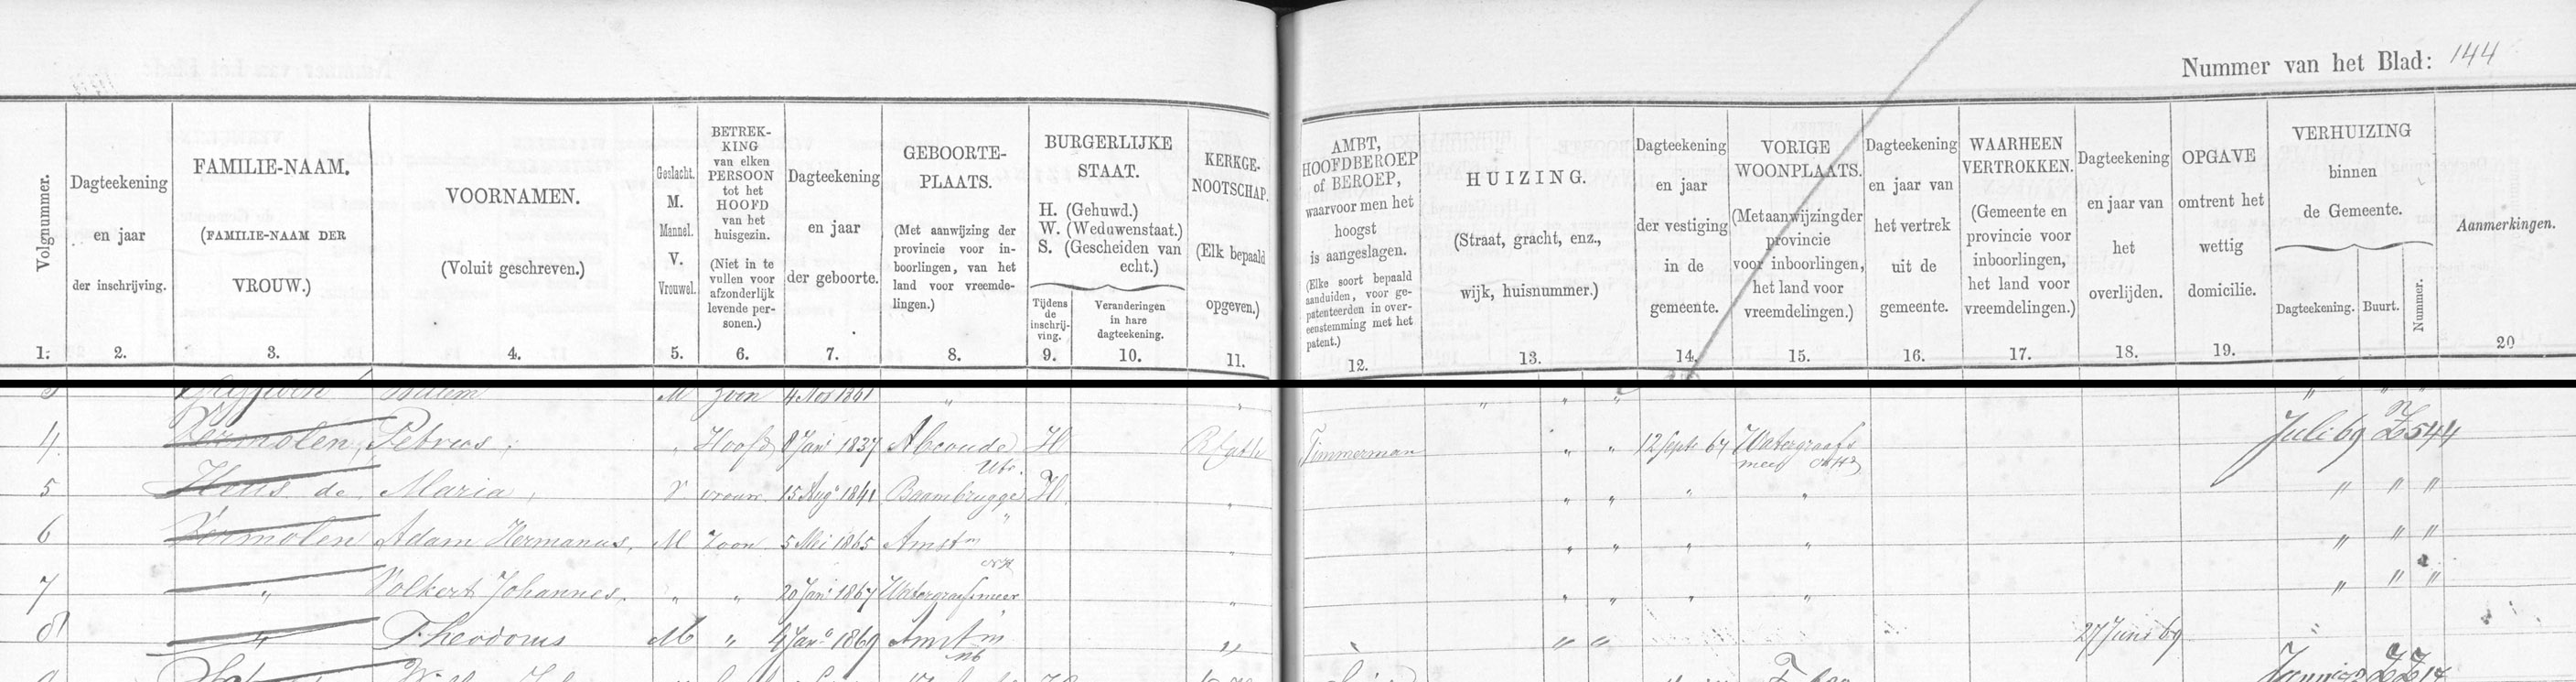 Nummer van het Blad: 144
Volgnummer.
1.
Dagteekening
en jaar
der inschrijving.
2.
FAMILIE-NAAM.
(FAMILIE-NAAM DER
VROUW.)
3.
VOORNAMEN.
(Voluit geschreven.)
4.
Geslacht.
M.
Mannel.
V.
Vrouwel.
5.
BETREK-
KING
van elken
PERSOON
tot het
HOOFD
van het
huisgezin.
(Niet in te
vullen voor
afzonderlijk
levende per-
sonen.)
6.
Dagteekening
en jaar
der geboorte.
7.
GEBOORTE-
PLAATS.
(Met aanwijzing der
provincie voor in-
boorlingen, van het
land voor vreemde-
lingen.)
8.
BURGERLIJKE
STAAT.
H. (Gehuwd.)
W. (Weduwenstaat.)
S. (Gescheiden van
echt.)
Tijdens
de
inschrij-
ving.
9.
Veranderingen
in hare
dagteekening.
10.
KERKGE-
NOOTSCHAP.
(Elk bepaald
opgeven.)
11.
AMBT,
HOOFDBEROEP
of BEROEP,
waarvoor men het
hoogst
is aangeslagen.
(Elke soort bepaald
aanduiden, voor ge-
patenteerden in over-
eenstemming met het
patent.)
12.
HUIZING.
(Straat, gracht, enz.,
wijk, huisnummer.)
13.
Dagteekening
en jaar
der vestiging
in de
gemeente.
14.
VORIGE
WOONPLAATS.
(Met aanwijzing der
provincie
voor inboorlingen,
het land voor
vreemdelingen.)
15.
Dagteekening
en jaar van
het vertrek
uit de
gemeente.
16.
WAARHEEN
VERTROKKEN.
(Gemeente en
provincie voor
inboorlingen,
het land voor
vreemdelingen.)
17.
Dagteekening
en jaar van
het
overlijden.
18.
OPGAVE
omtrent het
wettig
domicilie.
19.
VERHUIZING
binnen
de Gemeente.
Dagteekening.
Buurt.
Nummer.
Aanmerkingen.
20
3 Willem M zoon 4 Nov 1861 "
4 Vermolen, Petrus, " Hoofd 8 Jan 1837 Abcoude H R Cath Timmerman " " 12 Sept 67 Watergraafs Juli 69 ZZ 544
Utr. meer NH
5 Heus de, Maria, V vrouw 15 Aug 1841 Baambrugge H " " " " " " " "
6 Vermolen Adam Hermanus, M Zoon 5 Mei 1865 Amstm " " " " " " " "
NH
7 " Volkert Johannes, " " 20 Jan 1867 Watergraafsmeer " " " " " " " "
8 " Theodorus M " 4 Jan 1869 Amstm " " " 27 Juni 69